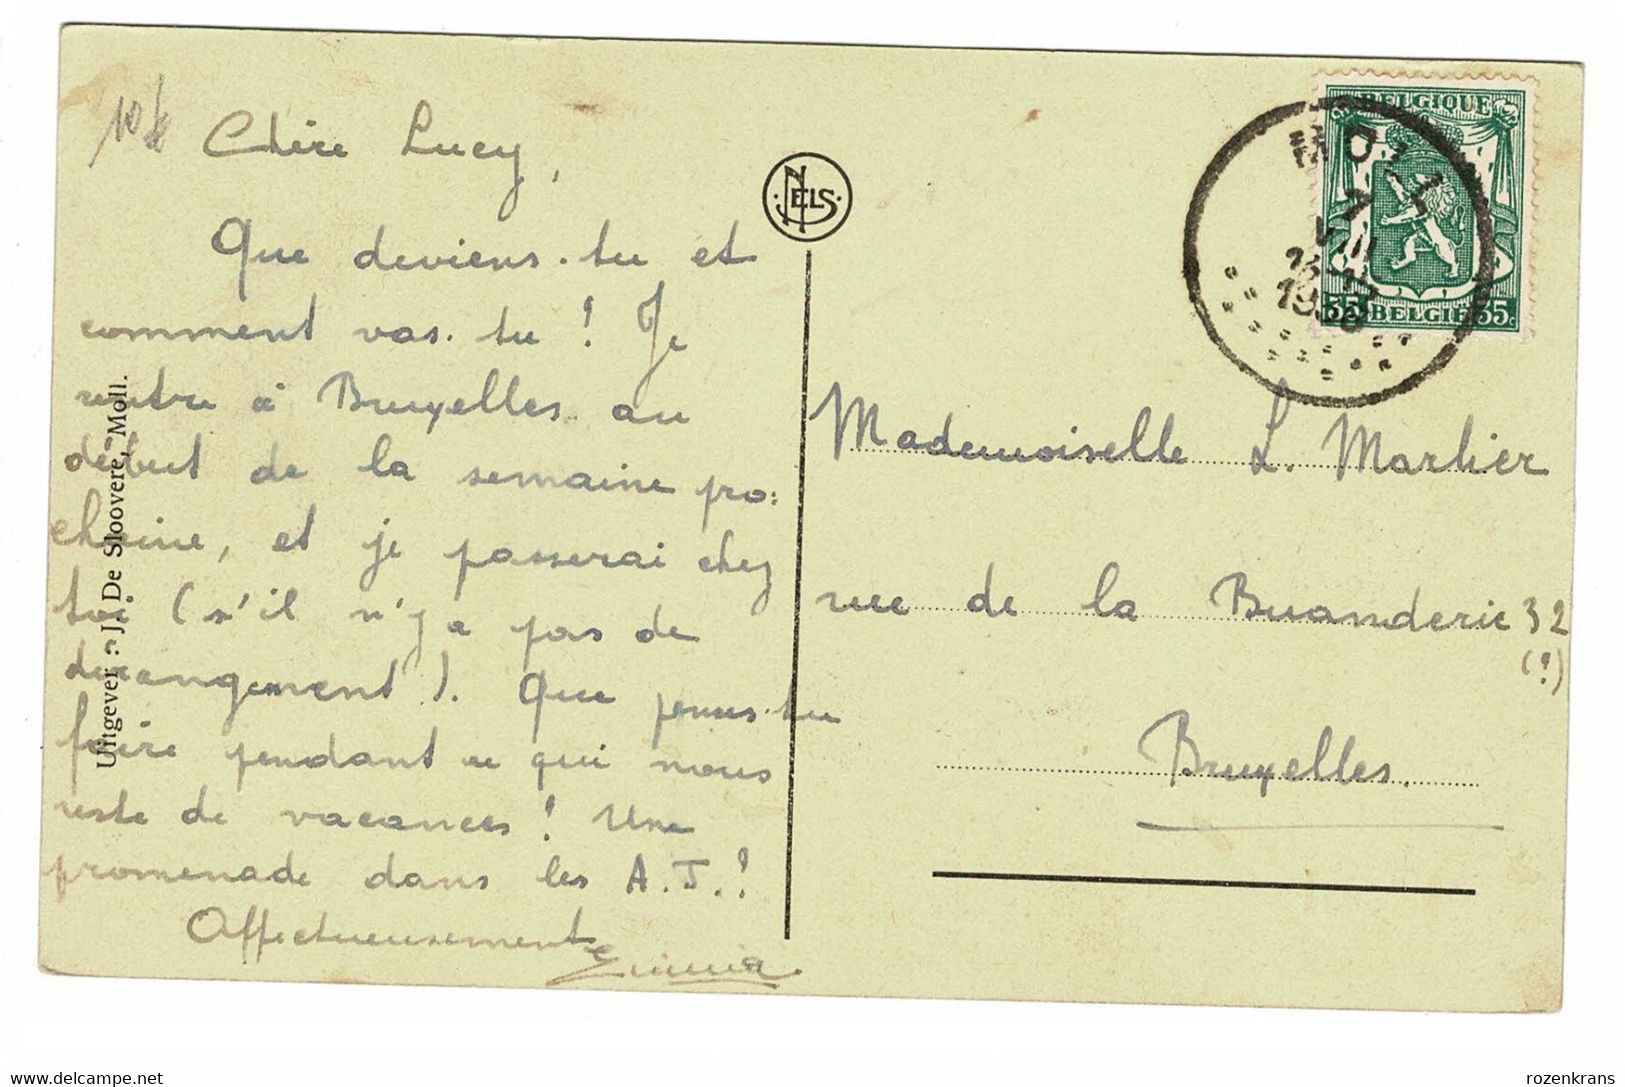 10
Chère Lucy,
Que deviens-tu et
comment vas-tu ! Je
rentre à Bruxelles au
début de la semaine pro=
chaine, et je passerai chez
toi (s'il n'y a pas de
dérangement). Que penses-tu
faire pendant ce qui nous
reste de vacances ! Une
promenade dans les A.J. !
Affectueusement
Emma
Uitgever : J. De Sloovere, Moll.
NELS
BELGIQUE
35 BELGIE 35c
MOLL
7
VIII
17
19
Mademoiselle L. Marlier
rue de la Buanderie 32
(!)
Bruxelles.
www.delcampe.net
rozenkrans